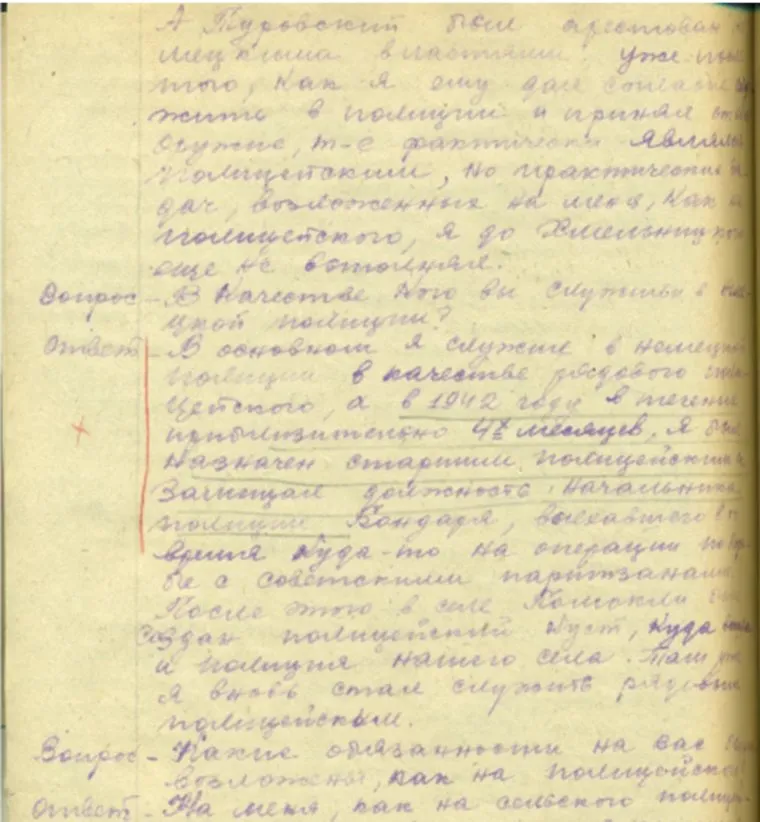 А Туровский был арестован
мецкими властями уже по
того, как я ему дал согласие
жить в полиции и принял
оружие, т-е фактически являлс
полицейским, но практически
дач, возложенных на меня, как
полицейского, я до Хмельниц
еще не выполнял.
Вопрос - В качестве кого вы служили в
цкой полиции?
Ответ - В основном я служил в немецк
полиции в качестве рядового
цейского, а в 1942 году в течение
приблизительно 4х месяцев, я был
назначен старшим полицейским и
замещал должность начальника
полиции Бондаря, выехавшего в
время куда-то на операции по
бе с советскими партизанами.
После этого в селе был
создан полицейский куст, куда
и полиция нашего села. Там
я вновь стал служить рядовым
полицейским.
Вопрос - Какие обязанности на вас
возложены, как на полицейск
Ответ - На меня, как на сельского полиц